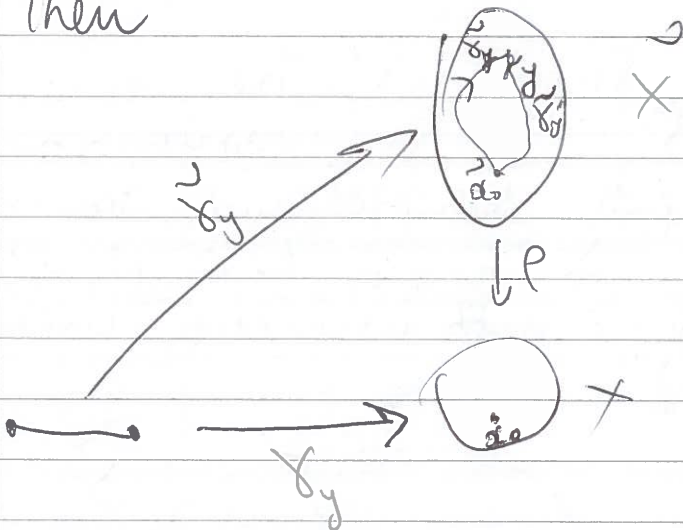 Then
γ̃_y
y
γ̃'_y
X̃
x̃₀
γ̃_y
↓ρ
x₀
X
γ_y